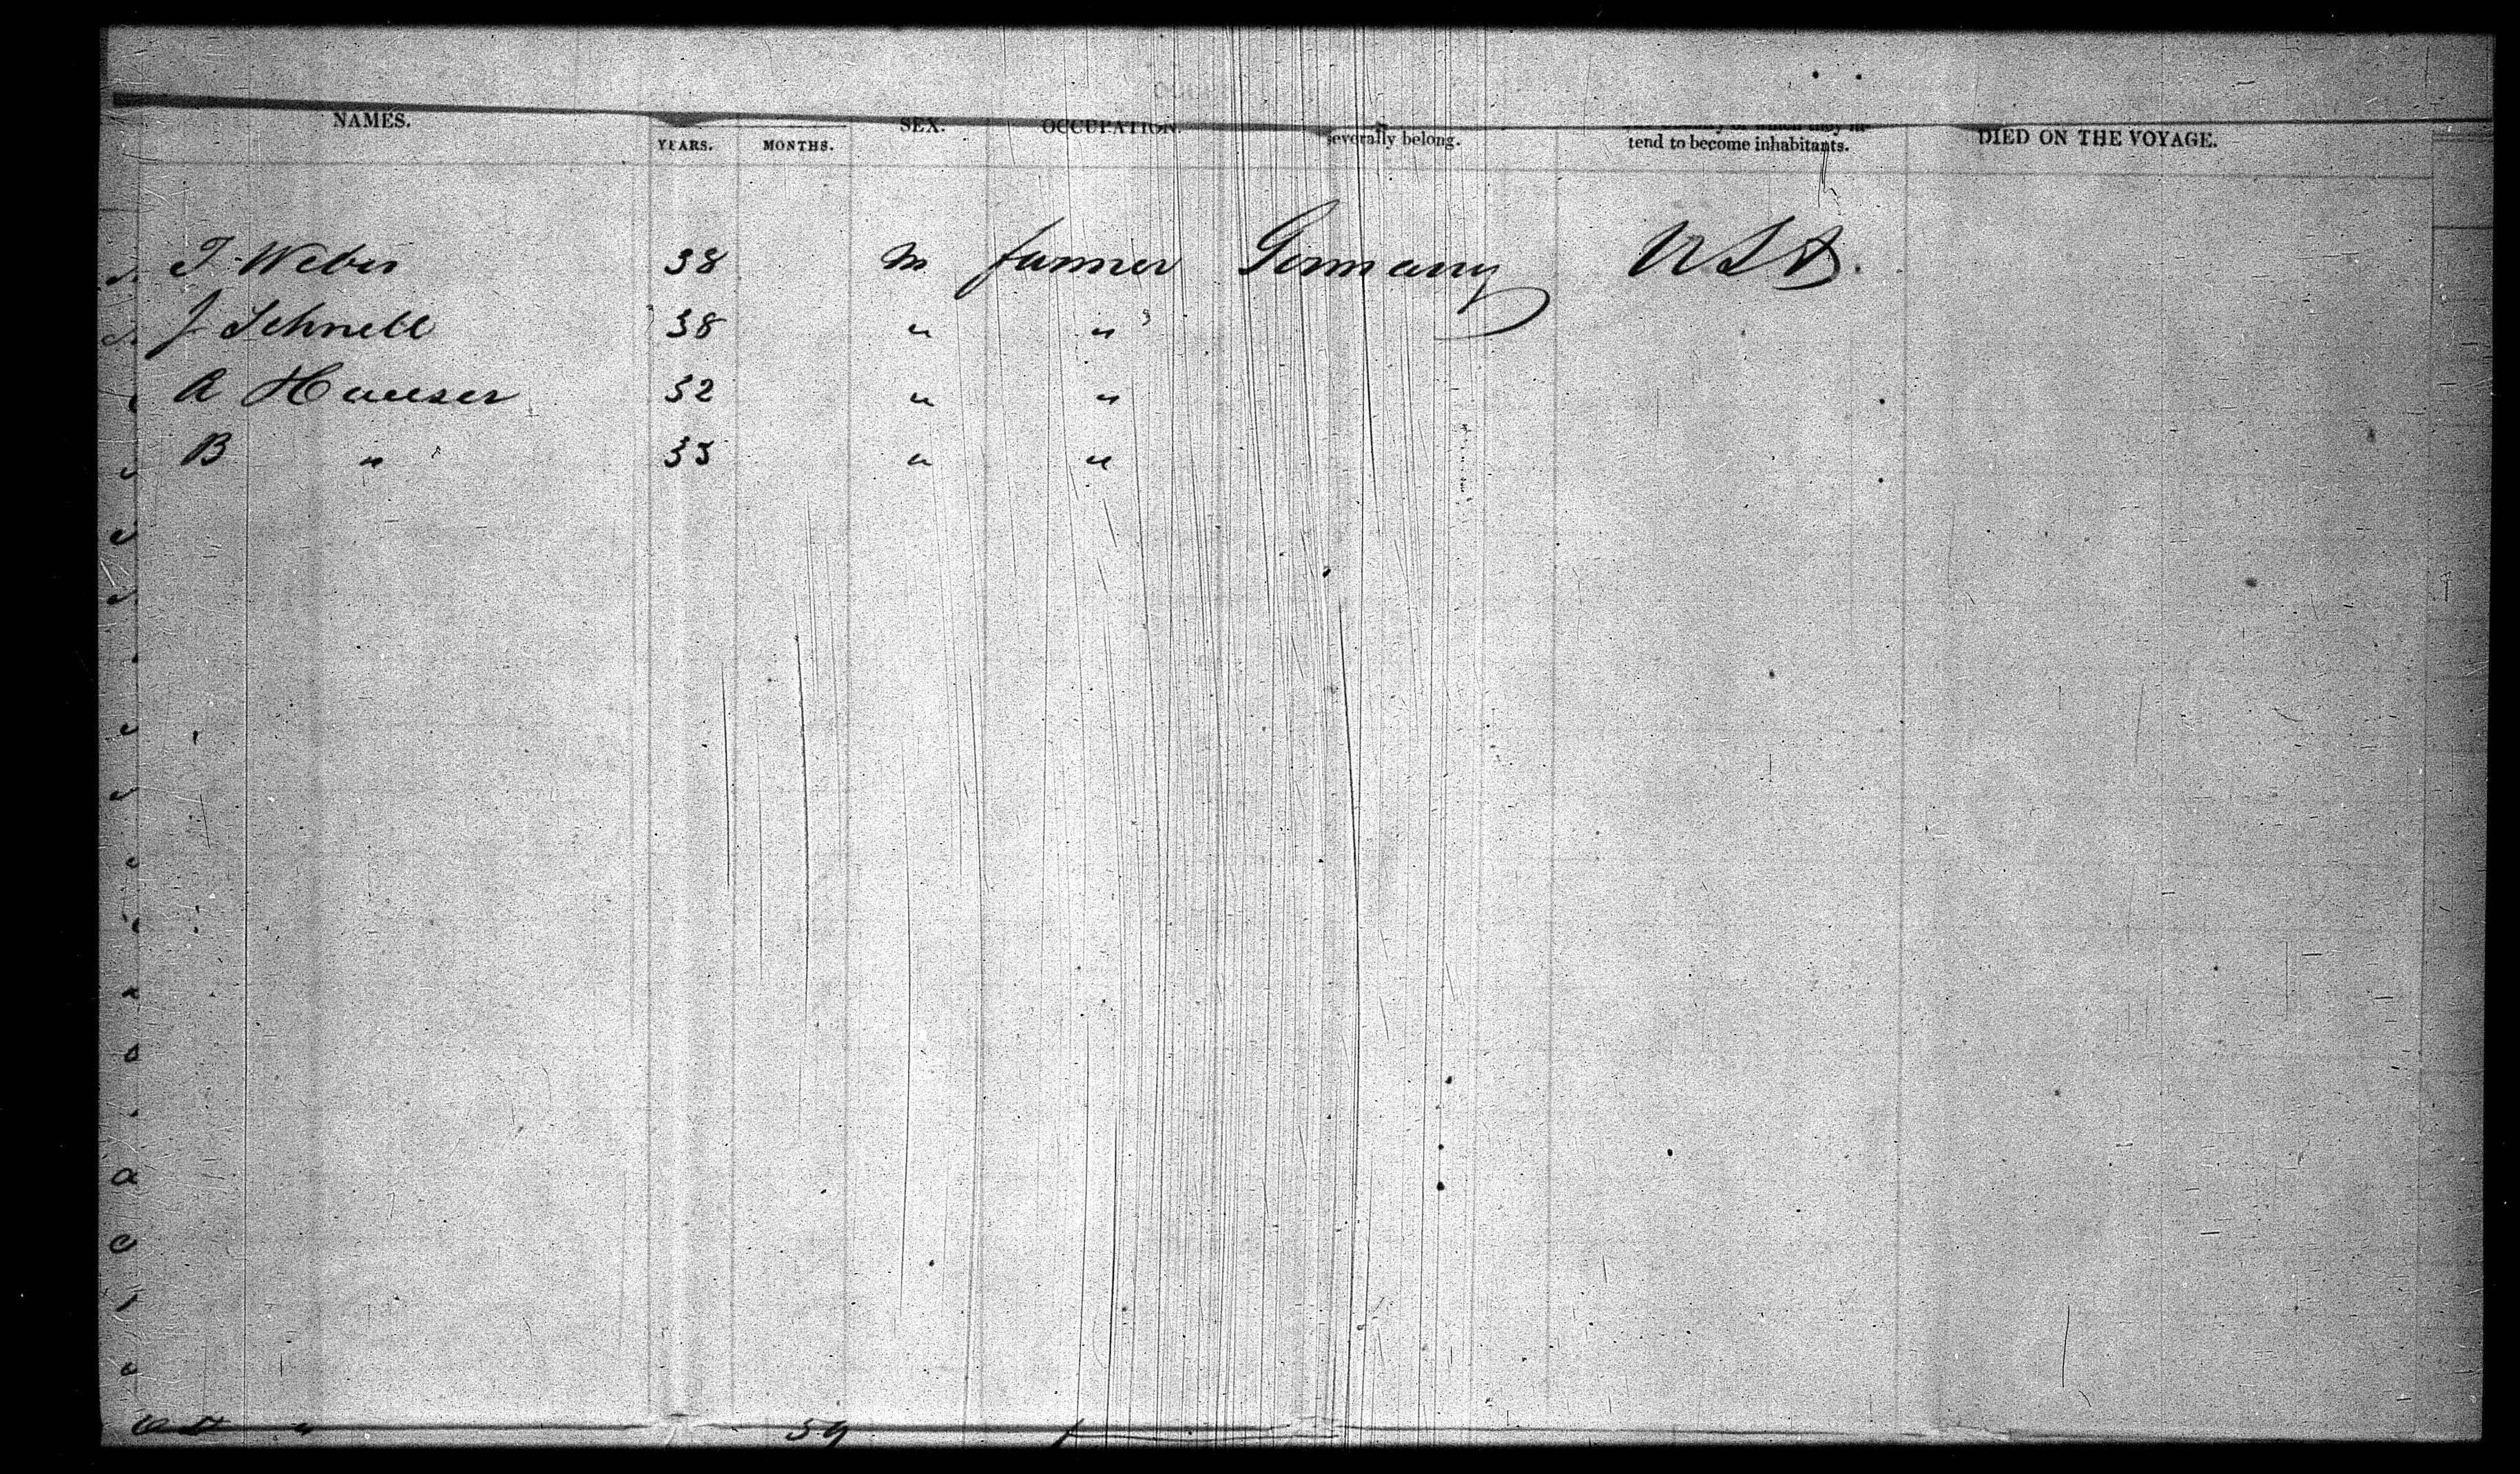 NAMES. YEARS. MONTHS. SEX. OCCUPATION. severally belong. tend to become inhabitants. DIED ON THE VOYAGE.
T. Weber 38 m farmer Germany USA.
J Schnell 38 " "
A Hauser 32 " "
B " 35 " "
59